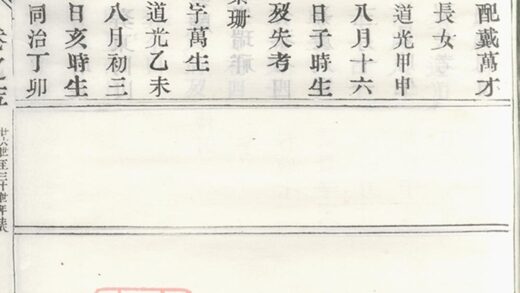 配戴萬才
長女
道光甲申
八月十六
日子時生
歿失考
珊
字萬生
道光乙未
八月初三
日亥時生
同治丁卯
廿六世至三十世年表